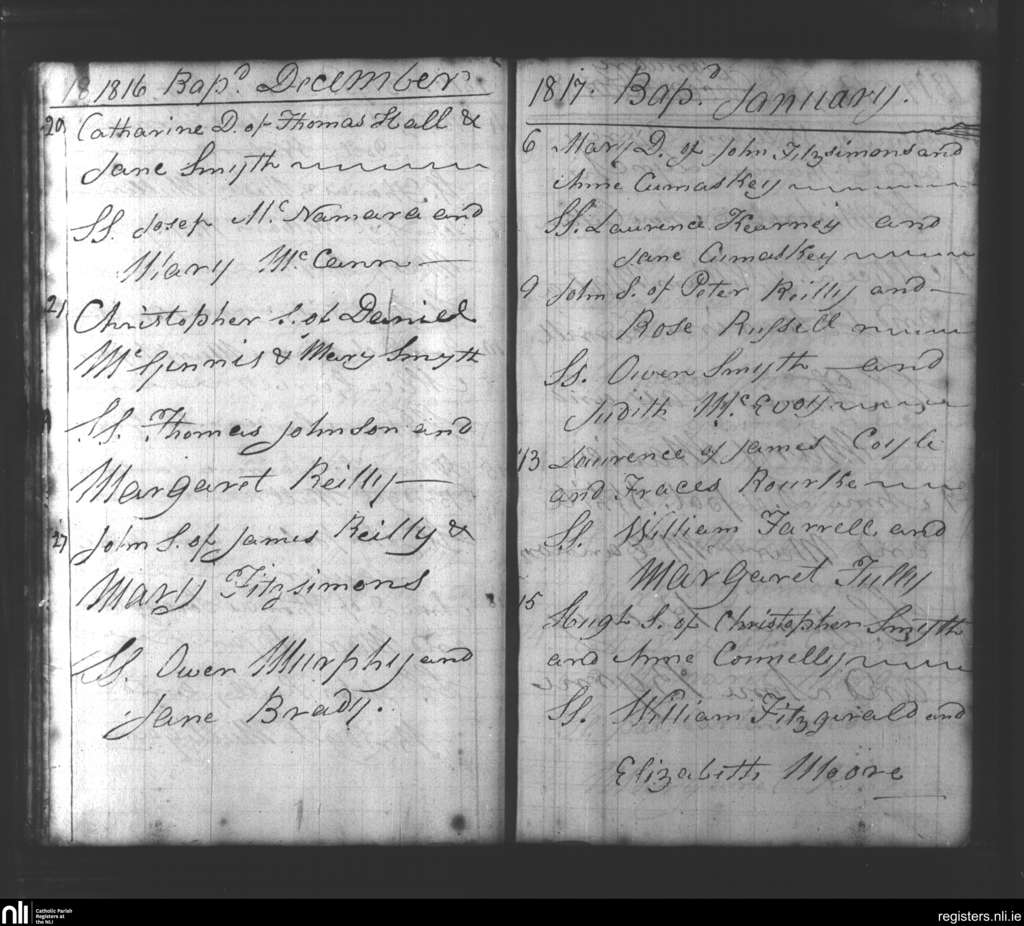 1816 Bap.d December
20 Catharine D. of Thomas Hall &
Jane Smyth
SS. Josep Mc Namara and
Mary Mc Cann
21 Christopher S. of Daniel
Mc Gennis & Mary Smyth
SS. Thomas Johnson and
Margaret Reilly
27 John S. of James Reilly &
Mary Fitzsimons
SS. Owen Murphy and
Jane Brady.
1817. Bap.d January.
6 Mary D. of John Fitzsimons and
Anne Cumaskey
SS. Laurence Kearney and
Jane Cumaskey
9 John S. of Peter Reilly and
Rose Russell
SS. Owen Smyth and
Judith Mc Evoy
13 Laurence of James Coyle
and Fraces Rourke
SS. William Farrell and
Margaret Tully
15 Hugh S. of Christopher Smyth
and Anne Connelly
SS. William Fitzgerald and
Elizabeth Moore
nli Catholic Parish
Registers at
the NLI
registers.nli.ie